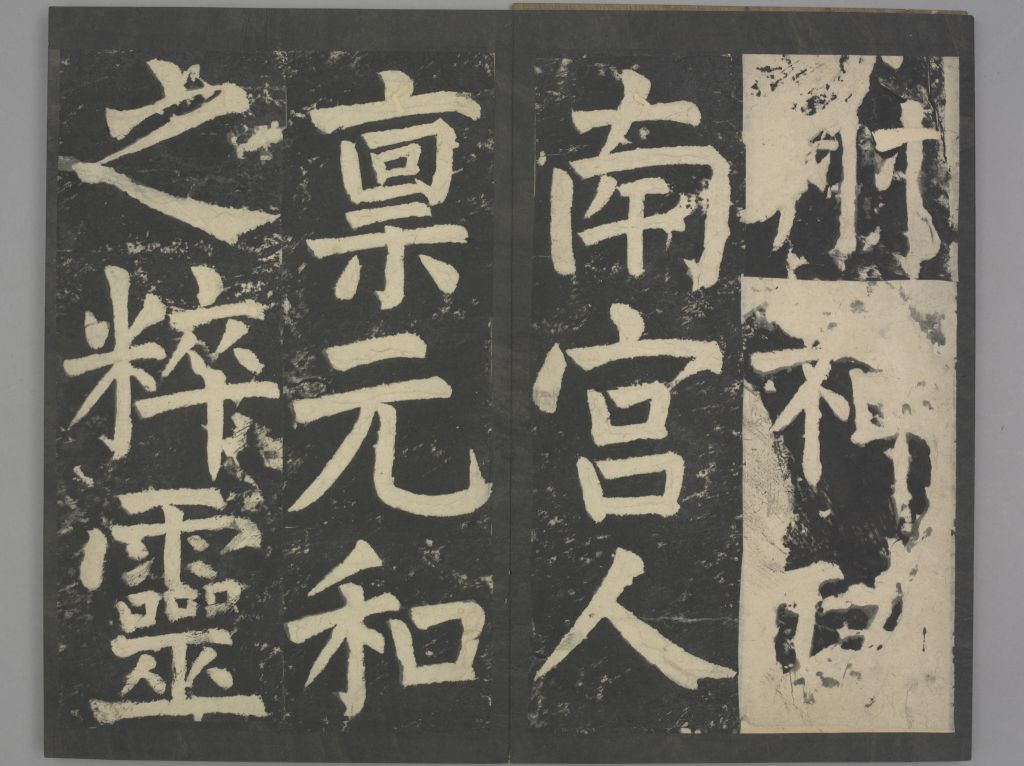 南宫人
禀元和
之粹靈